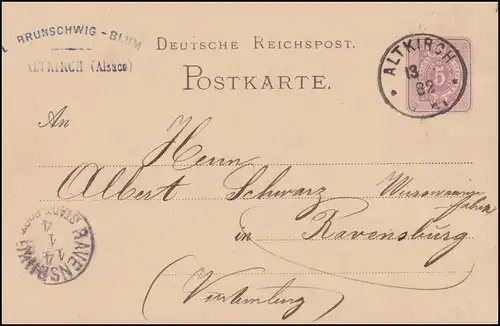 BRUNSCHWIG - BLUM
ALTKIRCH (Alsace)
DEUTSCHE REICHSPOST.
POSTKARTE.
ALTKIRCH
13
82
5
An
Herrn
Albert Schwarz
in Ravensburg
(Württemberg)
RAVENSBURG
14
1
4
STADTPOST